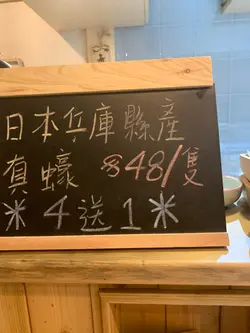 日本兵庫縣產
真蠔 $48/隻
*4送1*